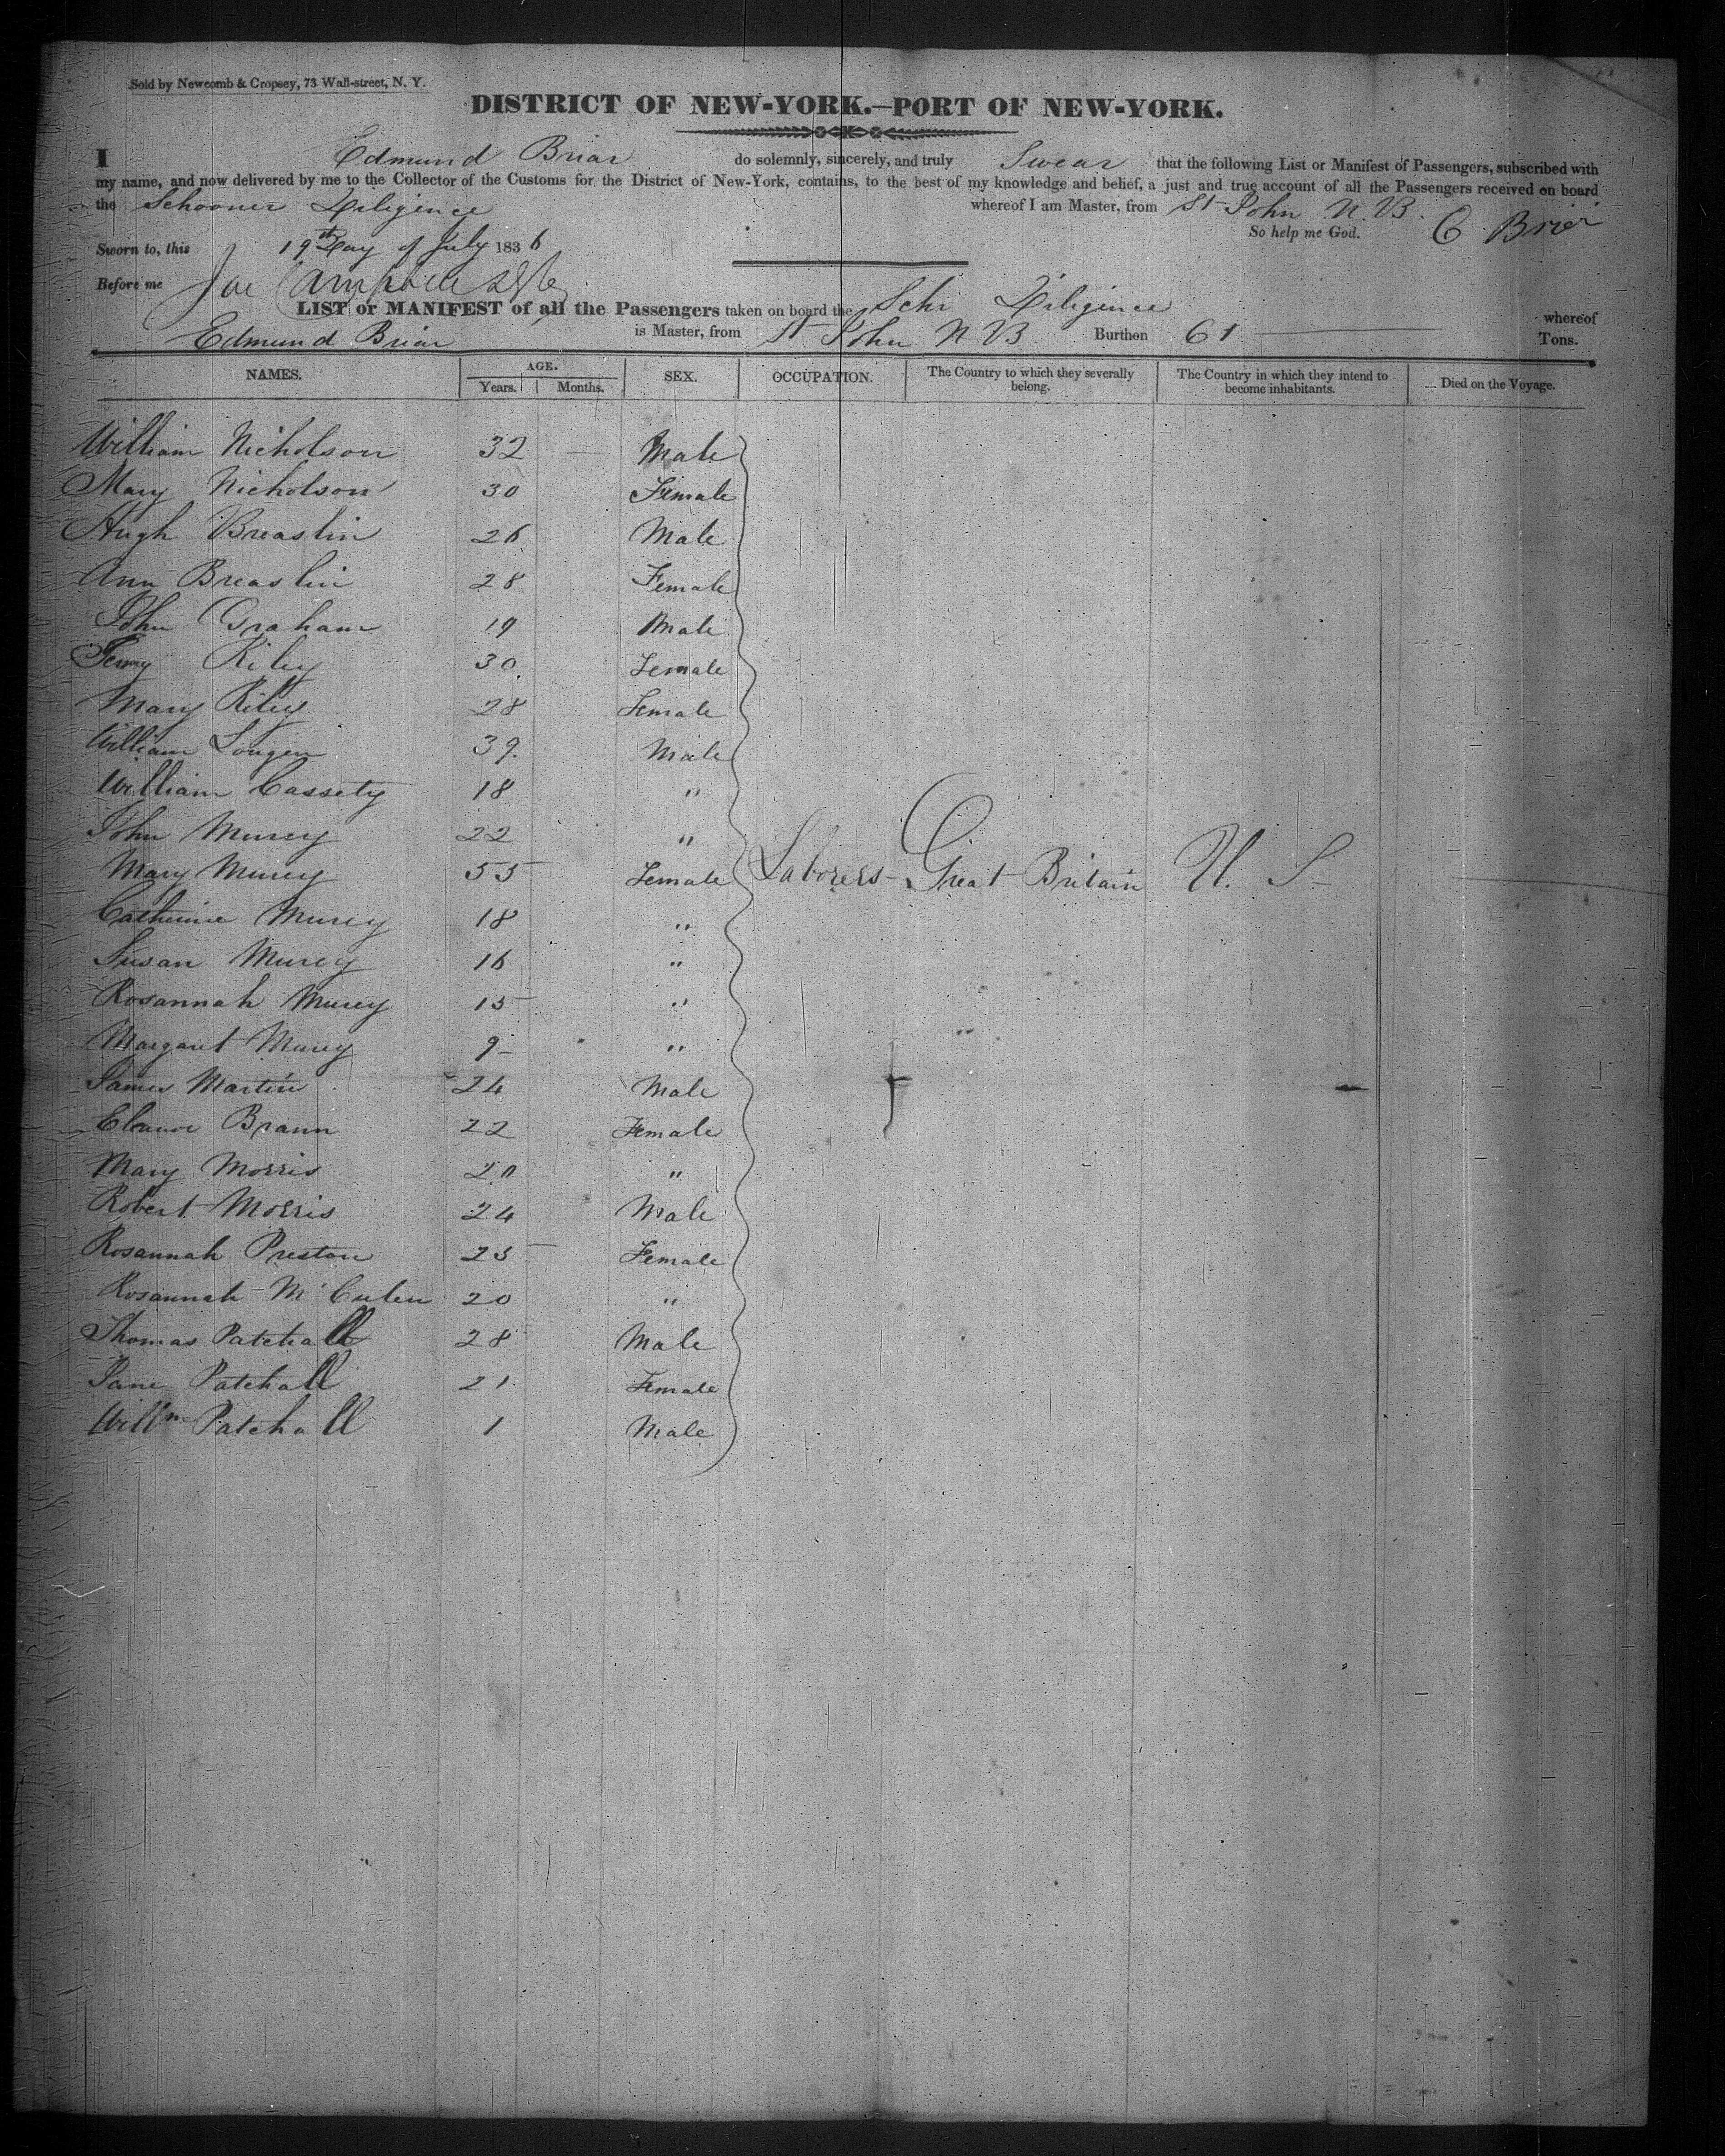 Sold by Newcomb & Cropsey, 73 Wall-street, N. Y.
DISTRICT OF NEW-YORK.—PORT OF NEW-YORK.
I Edmund Briar do solemnly, sincerely, and truly Swear that the following List or Manifest of Passengers, subscribed with
my name, and now delivered by me to the Collector of the Customs for the District of New-York, contains, to the best of my knowledge and belief, a just and true account of all the Passengers received on board
the Schooner Diligence whereof I am Master, from St John N. B.
So help me God. E Brier
Sworn to, this 19th Day of July 1836
Before me Campbell
LIST or MANIFEST of all the Passengers taken on board the Schr Diligence whereof
Edmund Briar is Master, from St John N B Burthen 61 Tons.
NAMES. AGE. Years. Months. SEX. OCCUPATION. The Country to which they severally belong. The Country in which they intend to become inhabitants. Died on the Voyage.
William Nicholson 32 — Male
Mary Nicholson 30 Female
Hugh Breaslin 26 Male
Ann Breaslin 28 Female
John Graham 19 Male
Riley 30 Female
Mary Riley 28 Female
William 39 Male
William Cassety 18 "
John Murey 22 "
Mary Murey 55 Female Laborers Great Britain U. S
Catherine Murey 18 "
Susan Murey 16 "
Rosannah Murey 15 "
Margaret Murey 9 "
James Martin 24 Male
Eleanor Brann 22 Female
Mary Morris 20 "
Robert Morris 24 Male
Rosannah Preston 25 Female
Rosannah M'Culen 20 "
Thomas Patchall 28 Male
Jane Patchall 21 Female
Willm Patchall 1 Male